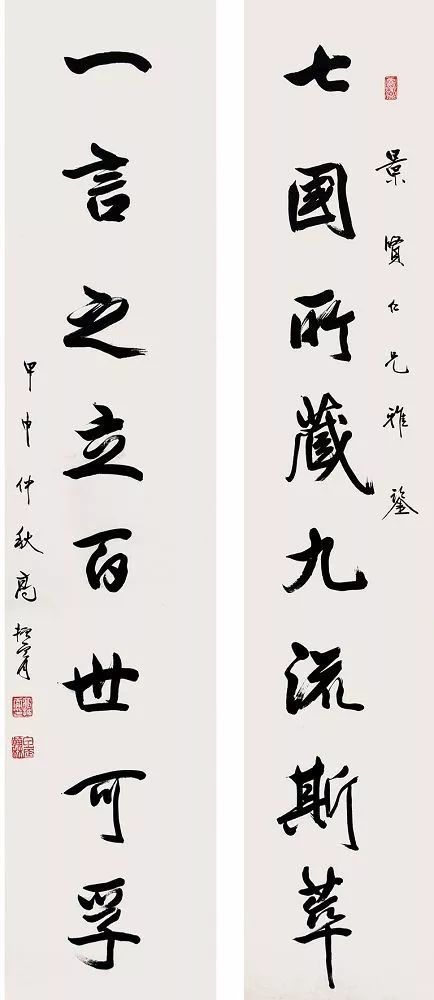 景賢仁兄雅鑒
七國所藏九流斯萃
一言之立百世可孚
甲申仲秋高振霄